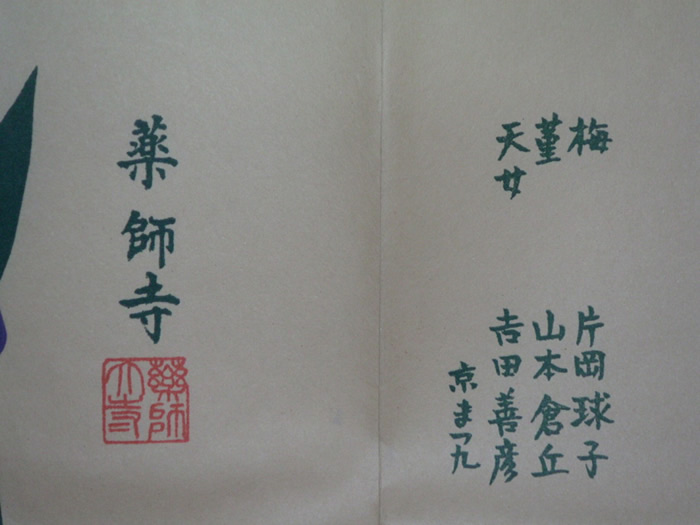 梅 片岡球子
菫 山本倉丘
天女 吉田善彦
京まつ九
薬師寺
藥師
大寺